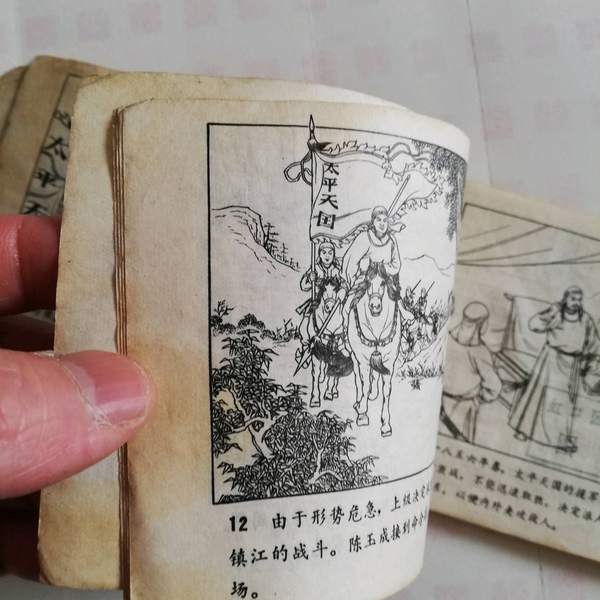 太平天
太平天国
12 由于形势危急，上级决定
镇江的战斗。陈玉成接到命令
场。
八五六年春，太平天国的战军
激战，不能迅速取胜，决定派人
以便内外夹攻敌人。